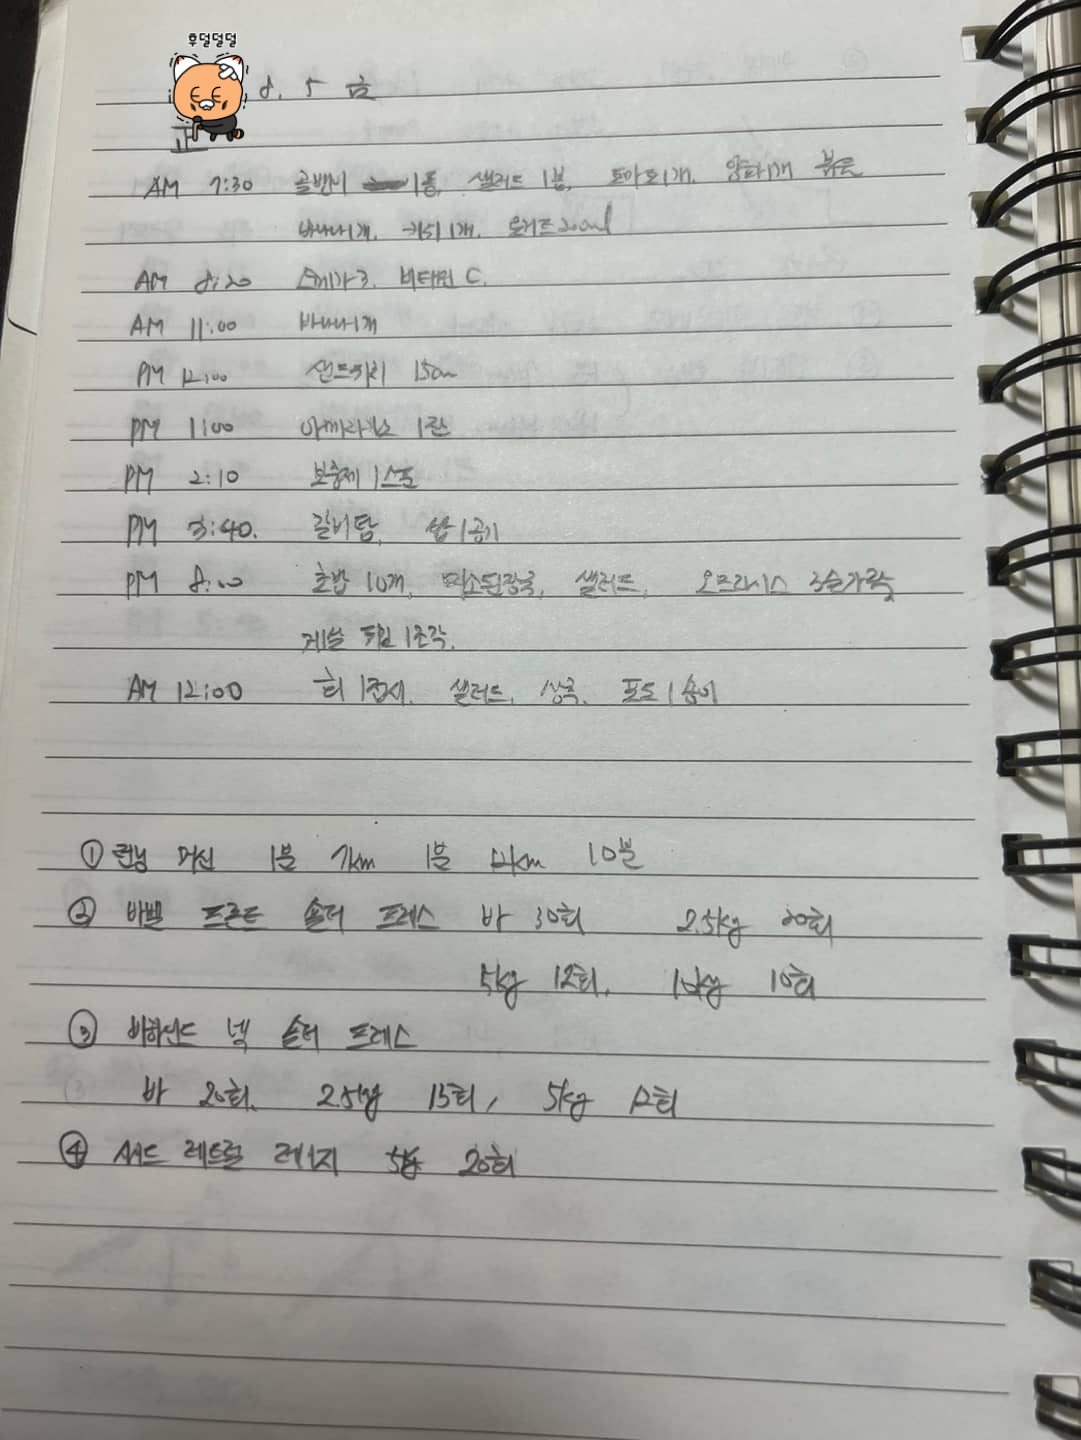 후덜덜덜
8. 5 금
正
AM 7:30 골뱅이 1통, 샐러드 1봉, 토마토1개, 양파1개 볶음
바나나1개, 키위1개, 요거트200ml
AM 8:20 오메가3, 비타민 C.
AM 11:00 바나나1개
PM 12:00 샌드위치 15cm
PM 1:00 아메리카노 1잔
PM 2:10 보충제 1스푼
PM 3:40. 갈비탕, 밥 1공기
PM 8:00 초밥 10개, 미소된장국, 샐러드,
게살 튀김 1조각.
AM 12:00 회 1접시, 샐러드, 포도 1송이
① 런닝 머신 1분 7km 1분 12km 10분
② 바벨 프론트 숄더 프레스 바 30회 2.5kg 20회
5kg 12회, 10kg 10회
③ 비하인드 넥 숄더 프레스
바 20회. 2.5kg 15회, 5kg 12회
④ 사이드 레트럴 레이지 20회